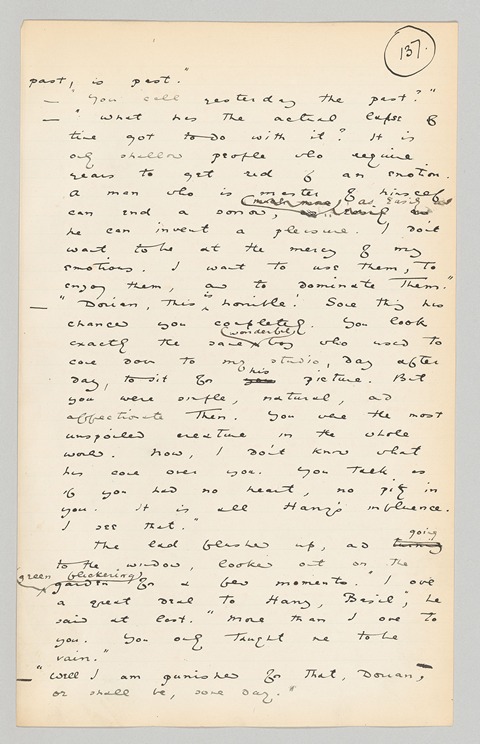 137.
past, is past."
— "You call yesterday the past?"
— "What has the actual lapse of
time got to do with it? It is
only shallow people who require
years to get rid of an emotion.
A man who is master of himself
can end a sorrow, as easily as
he can invent a pleasure. I don't
want to be at the mercy of my
emotions. I want to use them, to
enjoy them, and to dominate them."
— "Dorian, this is horrible! Some thing has
changed you completely. You look
exactly the same wonderful boy who used to
come down to my studio, day after
day, to sit for his picture. But
you were simple, natural, and
affectionate then. You were the most
unspoiled creature in the whole
world. Now, I don't know what
has come over you. You talk as
if you had no heart, no pity in
you. It is all Harry's influence.
I see that."
The lad flushed up, and going
to the window, looked out on the
green flickering garden for a few moments. "I owe
a great deal to Harry, Basil", he
said at last. "More than I owe to
you. You only taught me to be
vain."
— "Well I am punished for that, Dorian, —
or shall be, some day."